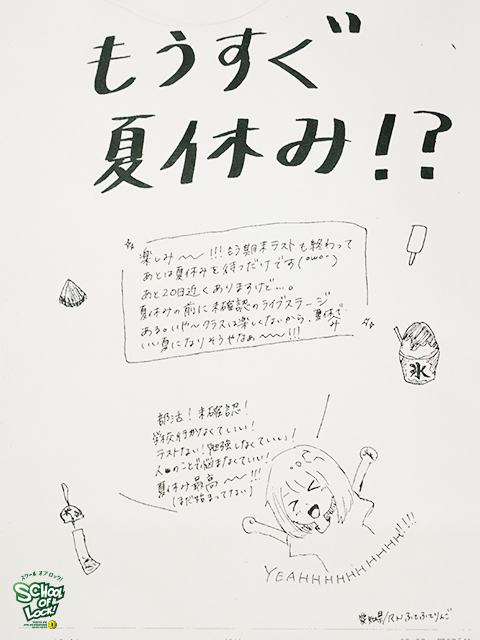 もうすぐ
夏休み!?
楽しみ〜〜!!!もう期末ラストも終わって
あとは夏休みを待つだけです(°ωo°)
あと20日近くありますけど…。
夏休みの前に未確認のライブステージ
ある。いや〜クラスは楽しくないから、夏休み
いい夏になりそうやなぁ〜〜!!!
部活!未確認!
学校行かなくていい!
テストない!勉強しなくていい!
人のことで悩まなくていい!
夏休み最高〜〜!!!
(まだ始まってない)
YEAHHHHHHHHHHH!!!!
氷
スクール オブ ロック!
SCHOOL
OF
LOCK!
愛知県/